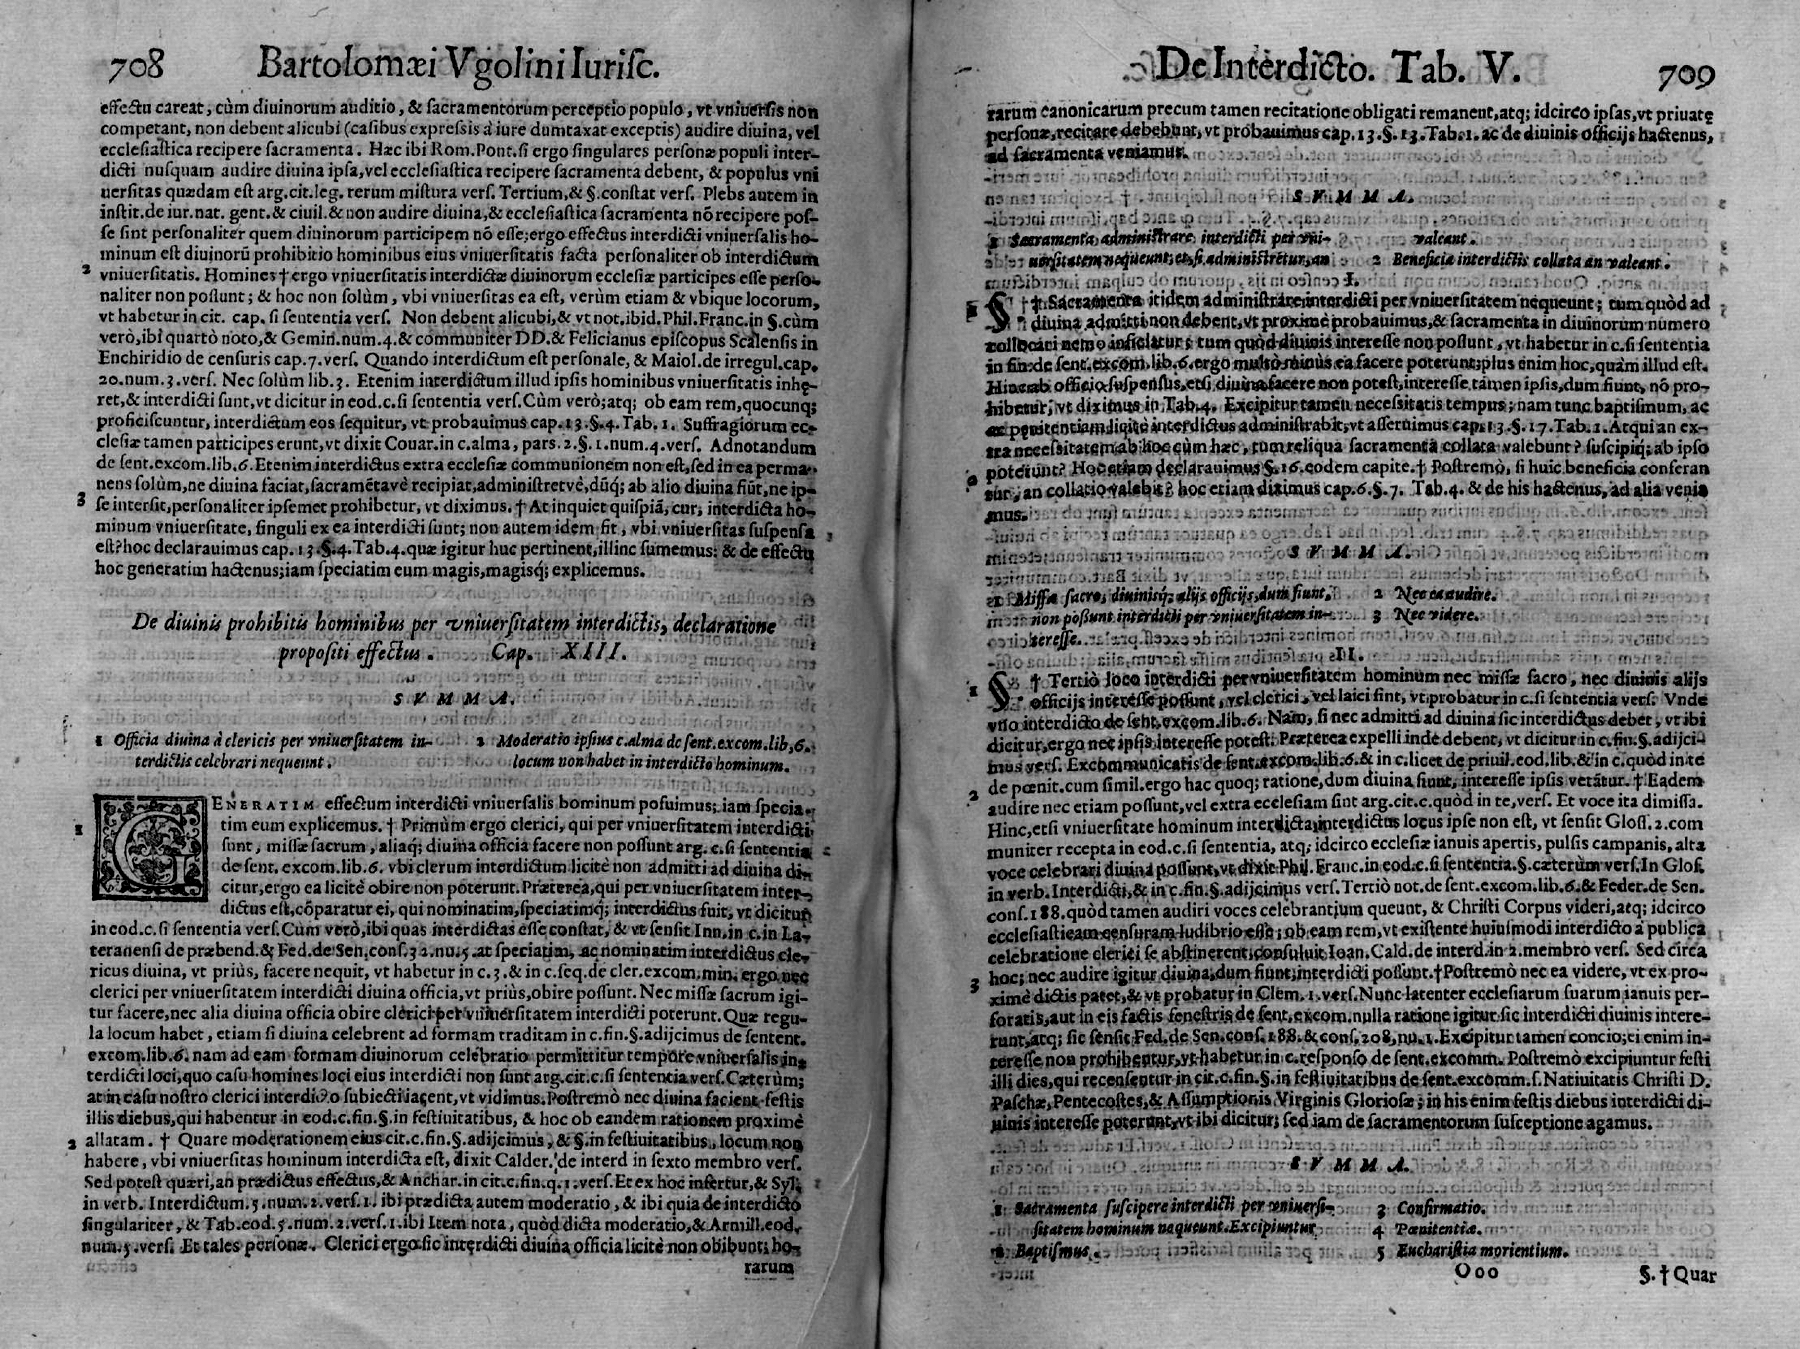 708 Bartolomæi Vgolini Iurisc.
effectu careat, cùm diuinorum auditio, & sacramentorum perceptio populo, vt vniuersis non
competant, non debent alicubi (casibus expressis à iure dumtaxat exceptis) audire diuina, vel
ecclesiastica recipere sacramenta. Hæc ibi Rom. Pont. si ergo singulares personæ populi inter-
dicti nusquam audire diuina ipsa, vel ecclesiastica recipere sacramenta debent, & populus vni
uersitas quædam est arg.cit.leg. rerum mistura vers. Tertium,& §.constat vers. Plebs autem in
instit.de iur.nat. gent.& ciuil.& non audire diuina,& ecclesiastica sacramenta nō recipere pos-
se sint personaliter quem diuinorum participem nō esse;ergo effectus interdicti vniuersalis ho-
minum est diuinorū prohibitio hominibus eius vniuersitatis facta personaliter ob interdictum
2 vniuersitatis. Homines † ergo vniuersitatis interdictæ diuinorum ecclesiæ participes esse perso-
naliter non possunt; & hoc non solùm, vbi vniuersitas ea est, verùm etiam & vbique locorum,
vt habetur in cit. cap. si sententia vers. Non debent alicubi,& vt not.ibid.Phil.Franc.in §.cùm
verò,ibi quartò noto,& Gemin.num.4.& communiter DD.& Felicianus episcopus Scalensis in
Enchiridio de censuris cap.7.vers. Quando interdictum est personale, & Maiol.de irregul.cap.
20.num.3.vers. Nec solùm lib.3. Etenim interdictum illud ipsis hominibus vniuersitatis inhę-
ret,& interdicti sunt,vt dicitur in eod.c.si sententia vers.Cùm verò;atq; ob eam rem,quocunq;
proficiscuntur, interdictum eos sequitur, vt probauimus cap.13.§.4.Tab.1. Suffragiorum ec-
clesiæ tamen participes erunt,vt dixit Couar.in c.alma, pars.2.§.1.num.4.vers. Adnotandum
de sent.excom.lib.6.Etenim interdictus extra ecclesiæ communionem non est,sed in ea perma-
nens solùm,ne diuina faciat,sacramētavè recipiat,administretvè,dūq; ab alio diuina fiūt,ne ip-
3 se intersit,personaliter ipsemet prohibetur, vt diximus. † At inquiet quispiā, cur, interdicta ho-
minum vniuersitate, singuli ex ea interdicti sunt; non autem idem fit, vbi vniuersitas suspensa
est? hoc declarauimus cap. 13.§.4.Tab.4.quæ igitur huc pertinent,illinc sumemus: & de effectu
hoc generatim hactenus;iam speciatim eum magis,magisq; explicemus.
De diuinis prohibitis hominibus per vniuersitatem interdictis, declaratione
propositi effectus. Cap. XIII.
SVMMA.
1 Officia diuina à clericis per vniuersitatem in-
terdictis celebrari nequeunt.
2 Moderatio ipsius c.alma de sent.excom.lib,6.
locum non habet in interdicto hominum.
GENERATIM effectum interdicti vniuersalis hominum posuimus; iam specia-
1 tim eum explicemus. † Primùm ergo clerici, qui per vniuersitatem interdicti
sunt, missæ sacrum, aliaq; diuina officia facere non possunt arg. c.si sententia
de sent. excom.lib.6. vbi clerum interdictum licitè non admitti ad diuina di-
citur,ergo ea licitè obire non poterunt. Præterea,qui per vniuersitatem inter-
dictus est,cōparatur ei, qui nominatim,speciatimq; interdictus fuit, vt dicitur
in eod.c.si sententia vers.Cum verò,ibi quas interdictas esse constat, & vt sensit Inn.in c.in La-
teranensi de præbend.& Fed.de Sen.cons.32.nu.5.at speciatim, ac nominatim interdictus cle-
ricus diuina, vt priùs, facere nequit, vt habetur in c.3.& in c.seq.de cler.excom.min. ergo nec
clerici per vniuersitatem interdicti diuina officia,vt priùs,obire possunt. Nec missæ sacrum igi-
tur facere,nec alia diuina officia obire clerici per vniuersitatem interdicti poterunt. Quæ regu-
la locum habet, etiam si diuina celebrent ad formam traditam in c.fin.§.adijcimus de sentent.
excom.lib.6. nam ad eam formam diuinorum celebratio permittitur tempore vniuersalis in-
terdicti loci,quo casu homines loci eius interdicti non sunt arg.cit.c.si sententia vers.Cæterùm;
at in casu nostro clerici interdicto subiecti iacent,vt vidimus.Postremò nec diuina facient festis
illis diebus,qui habentur in eod.c.fin.§.in festiuitatibus, & hoc ob eandem rationem proximè
2 allatam. † Quare moderationem eius cit.c.fin.§.adijcimus, & §.in festiuitatibus, locum non
habere, vbi vniuersitas hominum interdicta est, dixit Calder. de interd in sexto membro vers.
Sed potest quæri,an prædictus effectus,& Anchar.in cit.c.fin.q.1.vers.Et ex hoc infertur,& Syl.
in verb. Interdictum.5.num.2.vers.1. ibi prædicta autem moderatio, & ibi quia de interdicto
singulariter, & Tab.eod.5.num.2.vers.1.ibi Item nota, quòd dicta moderatio,& Armill.eod.
num.5.vers. Et tales personæ. Clerici ergo sic interdicti diuina officia licitè non obibunt; ho-
rarum
De Interdicto. Tab. V. 709
rarum canonicarum precum tamen recitatione obligati remanent,atq; idcirco ipsas,vt priuatę
personæ,recitare debebunt, vt probauimus cap.13.§.13.Tab.1. ac de diuinis officijs hactenus,
ad sacramenta veniamus.
SVMMA.
1 Sacramenta administrare interdicti per vni-
uersitatem nequeunt; et, si administrētur, an
valeant.
2 Beneficia interdictis collata an valeant.
I.
1 §. † Sacramenta itidem administrare interdicti per vniuersitatem nequeunt; tum quòd ad
diuina admitti non debent,vt proximè probauimus,& sacramenta in diuinorum numero
collocari nemo inficiatur; tum quòd diuinis interesse non possunt, vt habetur in c.si sententia
in fin.de sent.excom.lib.6.ergo multò minùs ea facere poterunt;plus enim hoc,quàm illud est.
Hinc ab officio suspensus,etsi diuina facere non potest,interesse tamen ipsis,dum fiunt, nō pro-
hibetur, vt diximus in Tab.4. Excipitur tamen necessitatis tempus; nam tunc baptismum, ac
pœnitentiam licitè interdictus administrabit, vt asseruimus cap.13.§.17.Tab.1.Atqui an ex-
tra necessitatem ab hoc cùm hæc, tum reliqua sacramenta collata valebunt? suscipiq; ab ipso
2 poterunt? Hoc etiam declarauimus §.16.eodem capite. † Postremò, si huic beneficia conferan
tur, an collatio valebit? hoc etiam diximus cap.6.§.7. Tab.4. & de his hactenus, ad alia venia
mus.
SVMMA.
1 Missæ sacro, diuinisq; alijs officijs,dum fiunt,
non possunt interdicti per vniuersitatem in-
teresse.
2 Nec ea audire.
3 Nec videre.
II.
1 §. † Tertiò loco interdicti per vniuersitatem hominum nec missæ sacro, nec diuinis alijs
officijs interesse possunt, vel clerici, vel laici sint, vt probatur in c.si sententia vers. Vnde
vno interdicto de sent.excom.lib.6. Nam, si nec admitti ad diuina sic interdictus debet, vt ibi
dicitur,ergo nec ipsis interesse potest. Præterea expelli inde debent, vt dicitur in c.fin.§.adijci-
mus vers. Excommunicatis de sent.excom.lib.6.& in c.licet de priuil.eod.lib.& in c.quòd in te
2 de pœnit.cum simil.ergo hac quoq; ratione, dum diuina fiunt, interesse ipsis vetātur. † Eadem
audire nec etiam possunt,vel extra ecclesiam sint arg.cit.c.quòd in te,vers. Et voce ita dimissa.
Hinc,etsi vniuersitate hominum interdicta,interdictus locus ipse non est, vt sensit Gloss.2.com
muniter recepta in eod.c.si sententia, atq; idcirco ecclesiæ ianuis apertis, pulsis campanis, alta
voce celebrari diuina possunt,vt dixit Phil. Franc.in eod.c.si sententia.§.cæterùm vers.In Glos.
in verb. Interdicti,& in c.fin.§.adijcimus vers. Tertiò not.de sent.excom.lib.6.& Feder.de Sen.
cons.188.quòd tamen audiri voces celebrantium queunt, & Christi Corpus videri,atq; idcirco
ecclesiasticam censuram ludibrio esse; ob eam rem,vt existente huiusmodi interdicto à publica
celebratione clerici se abstinerent,consuluit Ioan. Cald.de interd.in 2.membro vers. Sed circa
3 hoc; nec audire igitur diuina,dum fiunt,interdicti possunt.†Postremò nec ea videre, vt ex pro-
ximè dictis patet,& vt probatur in Clem.1.vers.Nunc latenter ecclesiarum suarum ianuis per-
foratis,aut in eis factis fenestris de sent.excom.nulla ratione igitur sic interdicti diuinis intere-
runt,atq; sic sensit Fed.de Sen.cons.188.& cons.208.nu.1.Excipitur tamen concio;ei enim in-
teresse non prohibentur,vt habetur in c.responso de sent.excomm. Postremò excipiuntur festi
illi dies,qui recensentur in cit.c.fin.§.in festiuitatibus de sent.excomm.s.Natiuitatis Christi D.
Paschæ,Pentecostes,& Assumptionis Virginis Gloriosæ; in his enim festis diebus interdicti di-
uinis interesse poterunt,vt ibi dicitur; sed iam de sacramentorum susceptione agamus.
SVMMA.
1 Sacramenta suscipere interdicti per vniuersi-
sitatem hominum nequeunt.Excipiuntur
2 Baptismus.
3 Confirmatio.
4 Pœnitentia.
5 Eucharistia morientium.
Ooo §.†Quar